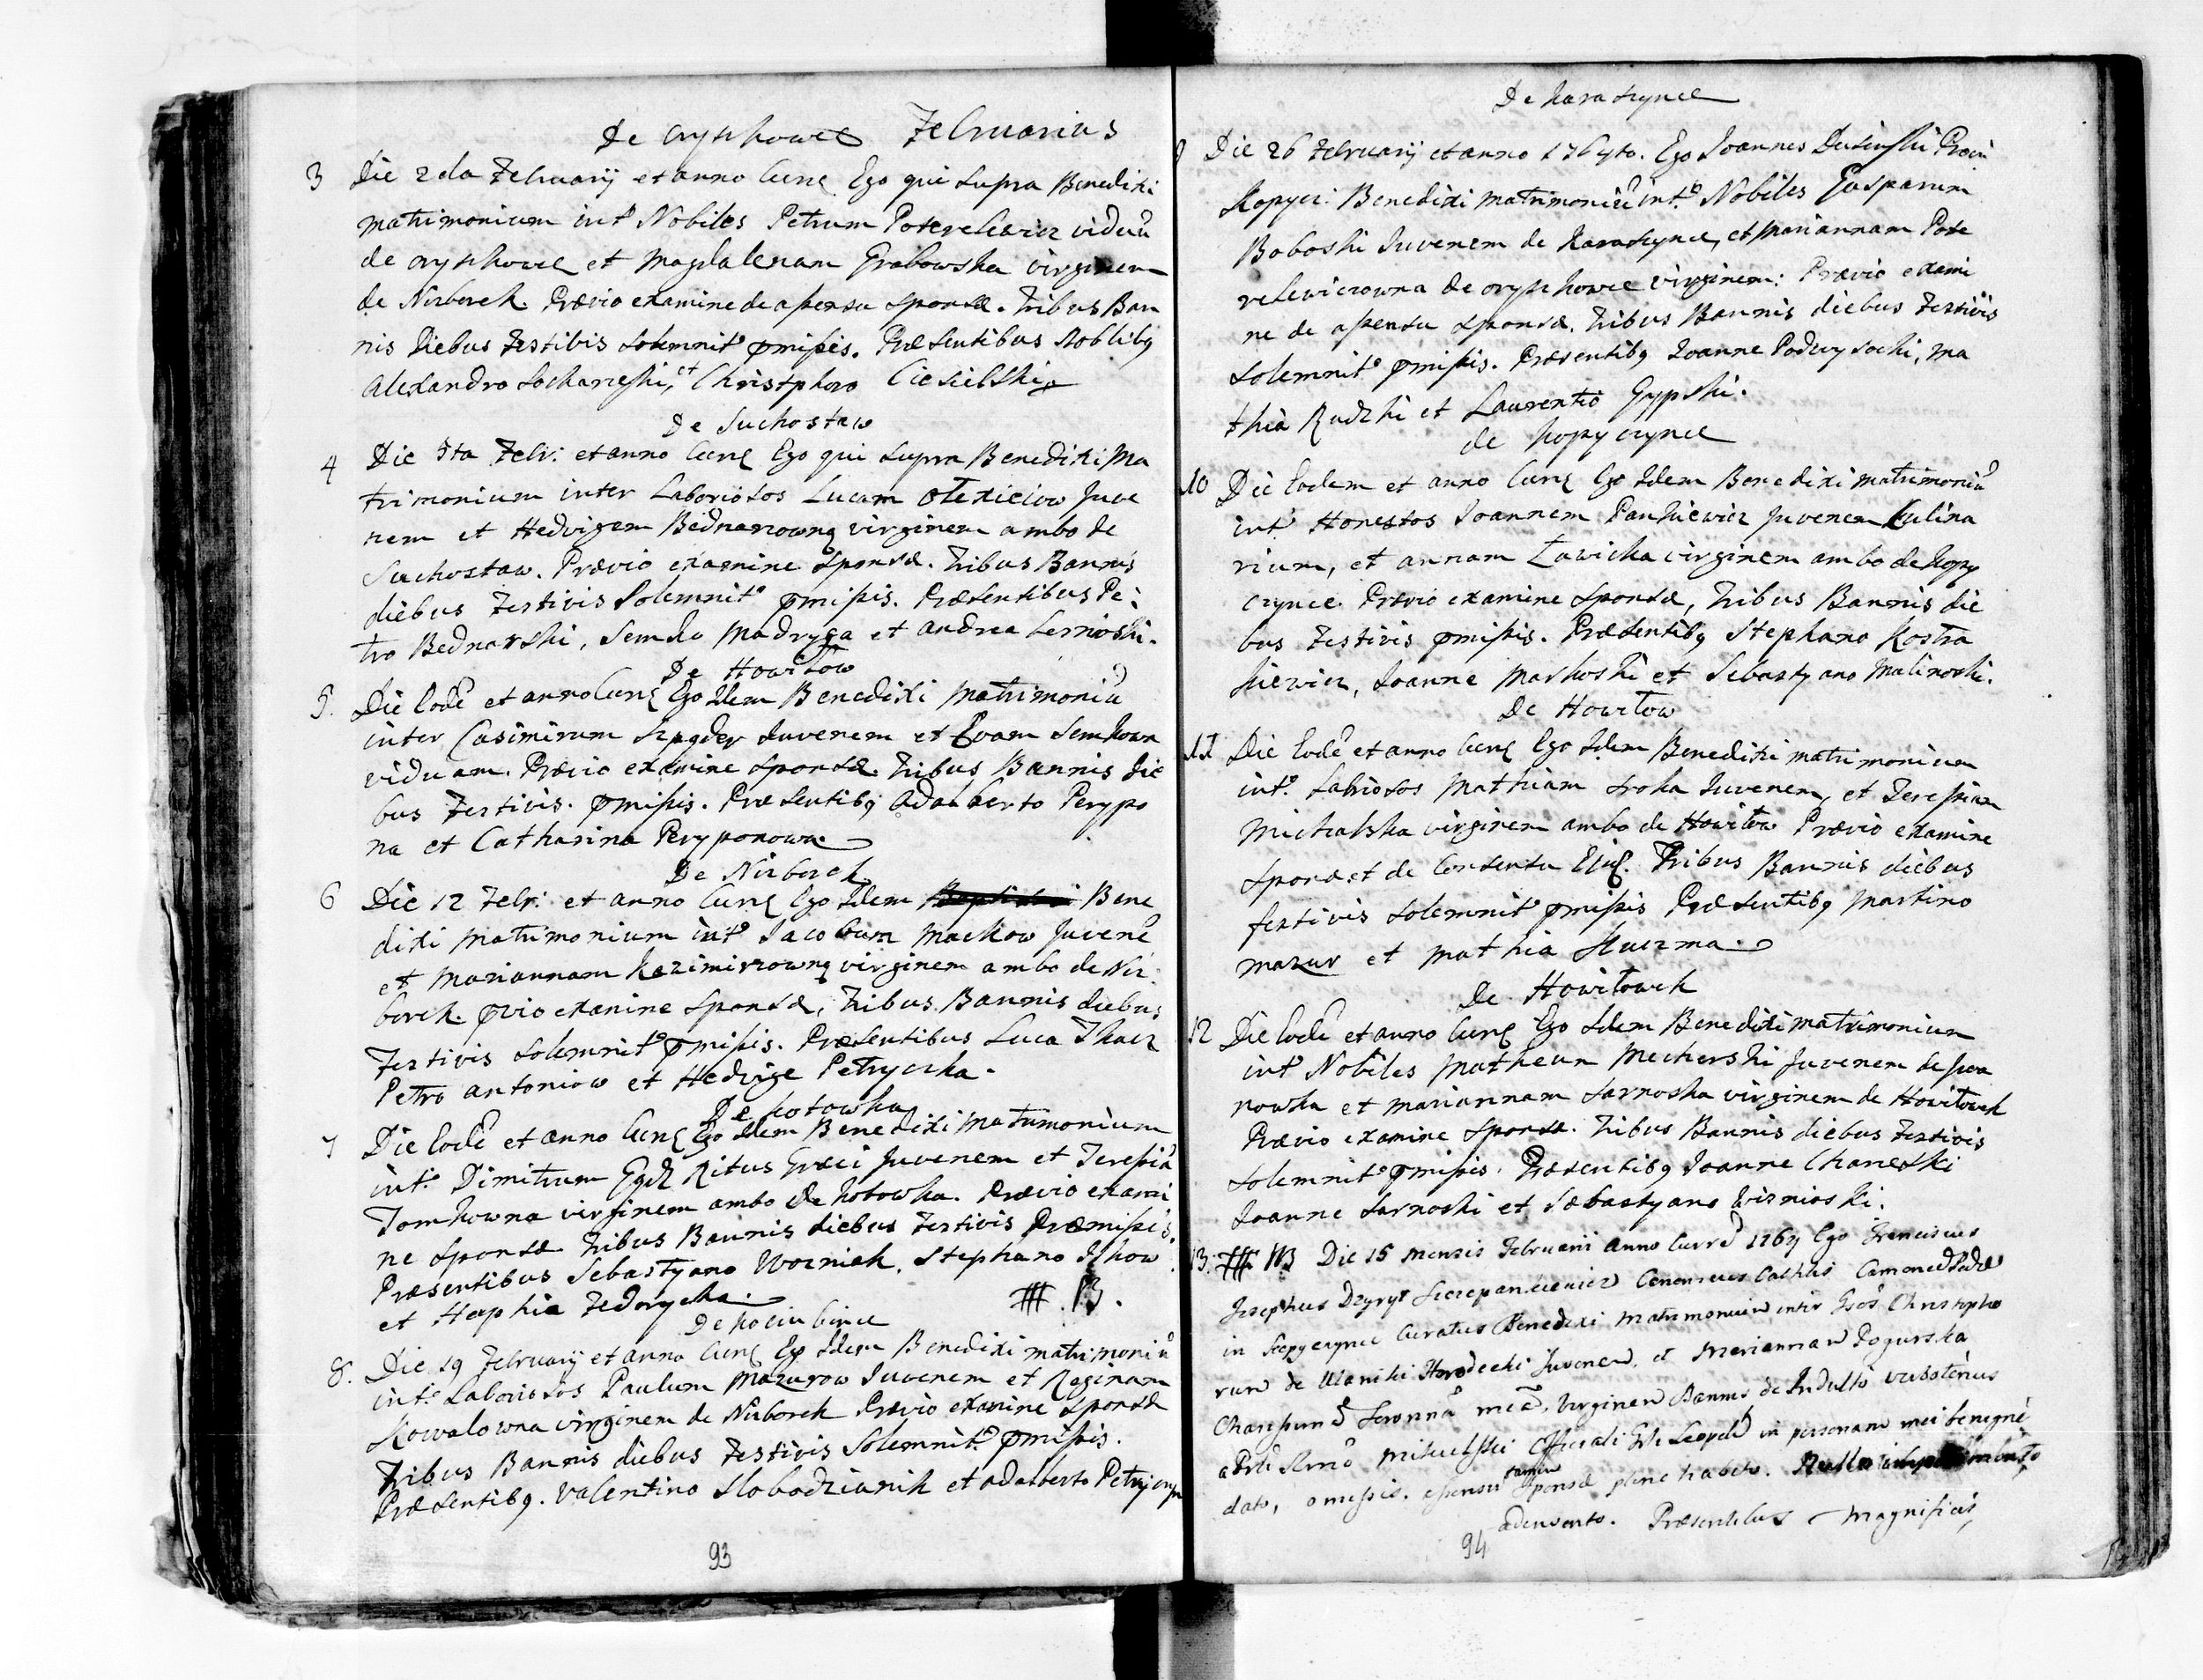 De Oryszkowce Februarius
3 Die 2da Februarij et anno Curr: Ego qui supra Benedixi
matrimonium intr Nobiles Petrum Poterelewicz viduũ
de oryszkowce et Magdalenam Grabowska virginem
de Nirborek. Prævio examine de assensu sponsæ. tribus Ban
nis diebus festivis solemnitr pmissis. Præsentibus Noblibq
Alexandro Sochaneski, et Christophoro Ciesielski
De Suchostaw
4 Die 5ta Febr: et anno Curr Ego qui supra Benedixi Ma
trimonium inter Laboriosos Lucam Olexiciow Juve
nem et Hedvigem Bednarzowną virginem ambo de
Suchostaw. Prævio examine sponsæ. tribus Bannis
diebus festivis Solemnitr pmissis. Præsentibus Pe
tro Bednarski, Semko Madryga et Andrea
De Howiłow
5. Die Eodẽ et anno Curr Ego Idem Benedixi Matrimoniũ
inter Casimirum Juvenem et Evam Semkowa
viduam. Prævio examine sponsæ tribus Bannis die
bus festivis. pmissis. Præsentibq Adalberto Perypo
na et Catharina Peryponowa
De Nirborek
6 Die 12 Febr: et anno Curr Ego Idem Bene
dixi Matrimonium intr Jacobum Mackow Juvenẽ
et Mariannam Kazimirzowną virginem ambo de Nir
borek. pvio examine sponsæ, tribus Bannis diebus
festivis solemnitr pmissis. Præsentibus Luca Tkacz
Petro Antoniow et Hedvige Petryczka.
De Kotowka
7 Die Eodẽ et anno Curr Ego Idem Benedixi Matrimonium
intr Dimitrum Ritus Græci Juvenem et Teressiã
Tomkowna virginem ambo de Kotowka. Prævio exami
ne sponsæ tribus Bannis diebus festivis Præmissis
Præsentibus Sebastyano Wozniak, Stephano Ilkow
et Haphia Fedorycha.
# . 13.
De Kociubince
8. Die 19 Februarij et anno Curr Ego Idem Benedixi matrimoniũ
intr Laboriosos Paulum Mazurow Juvenem et Reginam
Kowalowna virginem de Nirborek Prævio examine sponsæ
tribus Bannis diebus festivis Solemnitr pmissis.
Præsentibq. Valentino Slobodzianik et Adalberto
93
De Karaszynce
9 Die 26 Februarij et anno 1764to. Ego Joannes
Kopycz: Benedixi matrimoniũ intr Nobiles Gasparum
Boboski Juvenem de Karaszynce, et Mariannam Pote
relewiczowna de oryszkowce virginem: Prævio exami
ne de assensu sponsæ. tribus Bannis diebus festivis
solemnitr pmissis. Præsentibq Joanne Podwysocki, Ma
thia Rudzki et Laurentio Gypski.
de Kopyczynce
10 Die Eodem et anno Curr Ego Idem Benedixi matrimoniũ
intr Honestos Joannem Pankiewicz Juvenem Culina
rium, et annam Ławicka virginem ambo de Kopy
czynce. Prævio examine sponsæ, tribus Bannis die
bus festivis pmissis. Præsentibq Stephano Kostra
kiewicz, Joanne Maskoski et Sebastyano Malinoski.
De Howiłow
11 Die Eodẽ et anno Curr Ego Idem Benedixi matrimonium
intr. Labriosos Mathiam Sroka Juvenem, et Teressiam
Michalska virginem ambo de Howiłow Prævio examine
sponsæ et de Consensu Ejus. Tribus Bannis diebus
festivis solemnitr pmissis Præsentibq Martino
Mazur et Mathia Kuczma.
De Howiłowek
12 Die Eodẽ et anno Curr Ego Idem Benedixi matrimonium
intr Nobiles Matheum Mecherski Juvenem de Iwa
nowka et Mariannam Sarnoska virginem de Howiłowek
Prævio examine sponsæ. tribus Bannis diebus festivis
solemnitr pmissis. Præsentibq Joanne Chaneski
Joanne Sarnoski et Sebastyano Wisnioski.
13. # NB Die 15 mensis Februarii anno Currẽ 1764 Ego Franciscus
Josephus Szczepankiewicz Canonicus Camened
in Kopyczynce Curatus Benedixi Matrimonium inter Christopho
rum de Ulaniki Horodecki Juvenem, et Mariannam Pogurska
Charissimã meã, Virginem Bannis de Indulto
a Officiali in personam mei benignè
dato, omissis. assensu tamen sponsæ plenè habito. Nullo impedimento
. Præsentibus Magnificis,
94